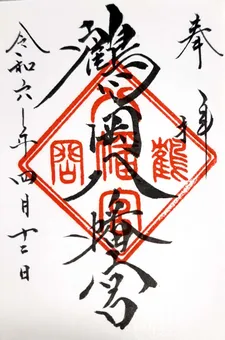 奉拝
鶴岡八幡宮
令和六年四月十二日
鶴岡八幡宮